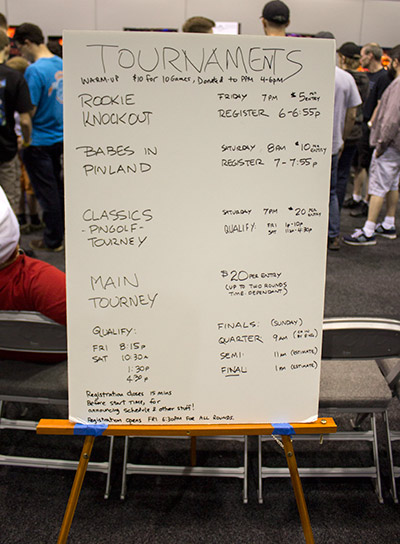 TOURNAMENTS
WARM-UP $10 FOR 10 GAMES, DONATED TO PPM 4-6PM
ROOKIE KNOCKOUT
FRIDAY 7 PM $5 PER ENTRY
REGISTER 6-6:55p
BABES IN PINLAND
SATURDAY 8AM $10 PER ENTRY
REGISTER 7-7:55p
CLASSICS -PNGOLF- TOURNEY
SATURDAY 7PM $20 PER ENTRY
QUALIFY: FRI 6p-10p
SAT 11am-4:30p
MAIN TOURNEY
$20 PER ENTRY
(UP TO TWO ROUNDS
TIME-DEPENDANT)
QUALIFY:
FRI 8:15p
SAT 10:30a
1:30p
4:30p
FINALS: (SUNDAY)
QUARTER 9am
SEMI 11am (ESTIMATE)
FINAL 1pm (ESTIMATE)
Registration closes 15 mins
Before start time, for
announcing schedule & other stuff!
Registration opens FRI 6:30pm FOR ALL ROUNDS.